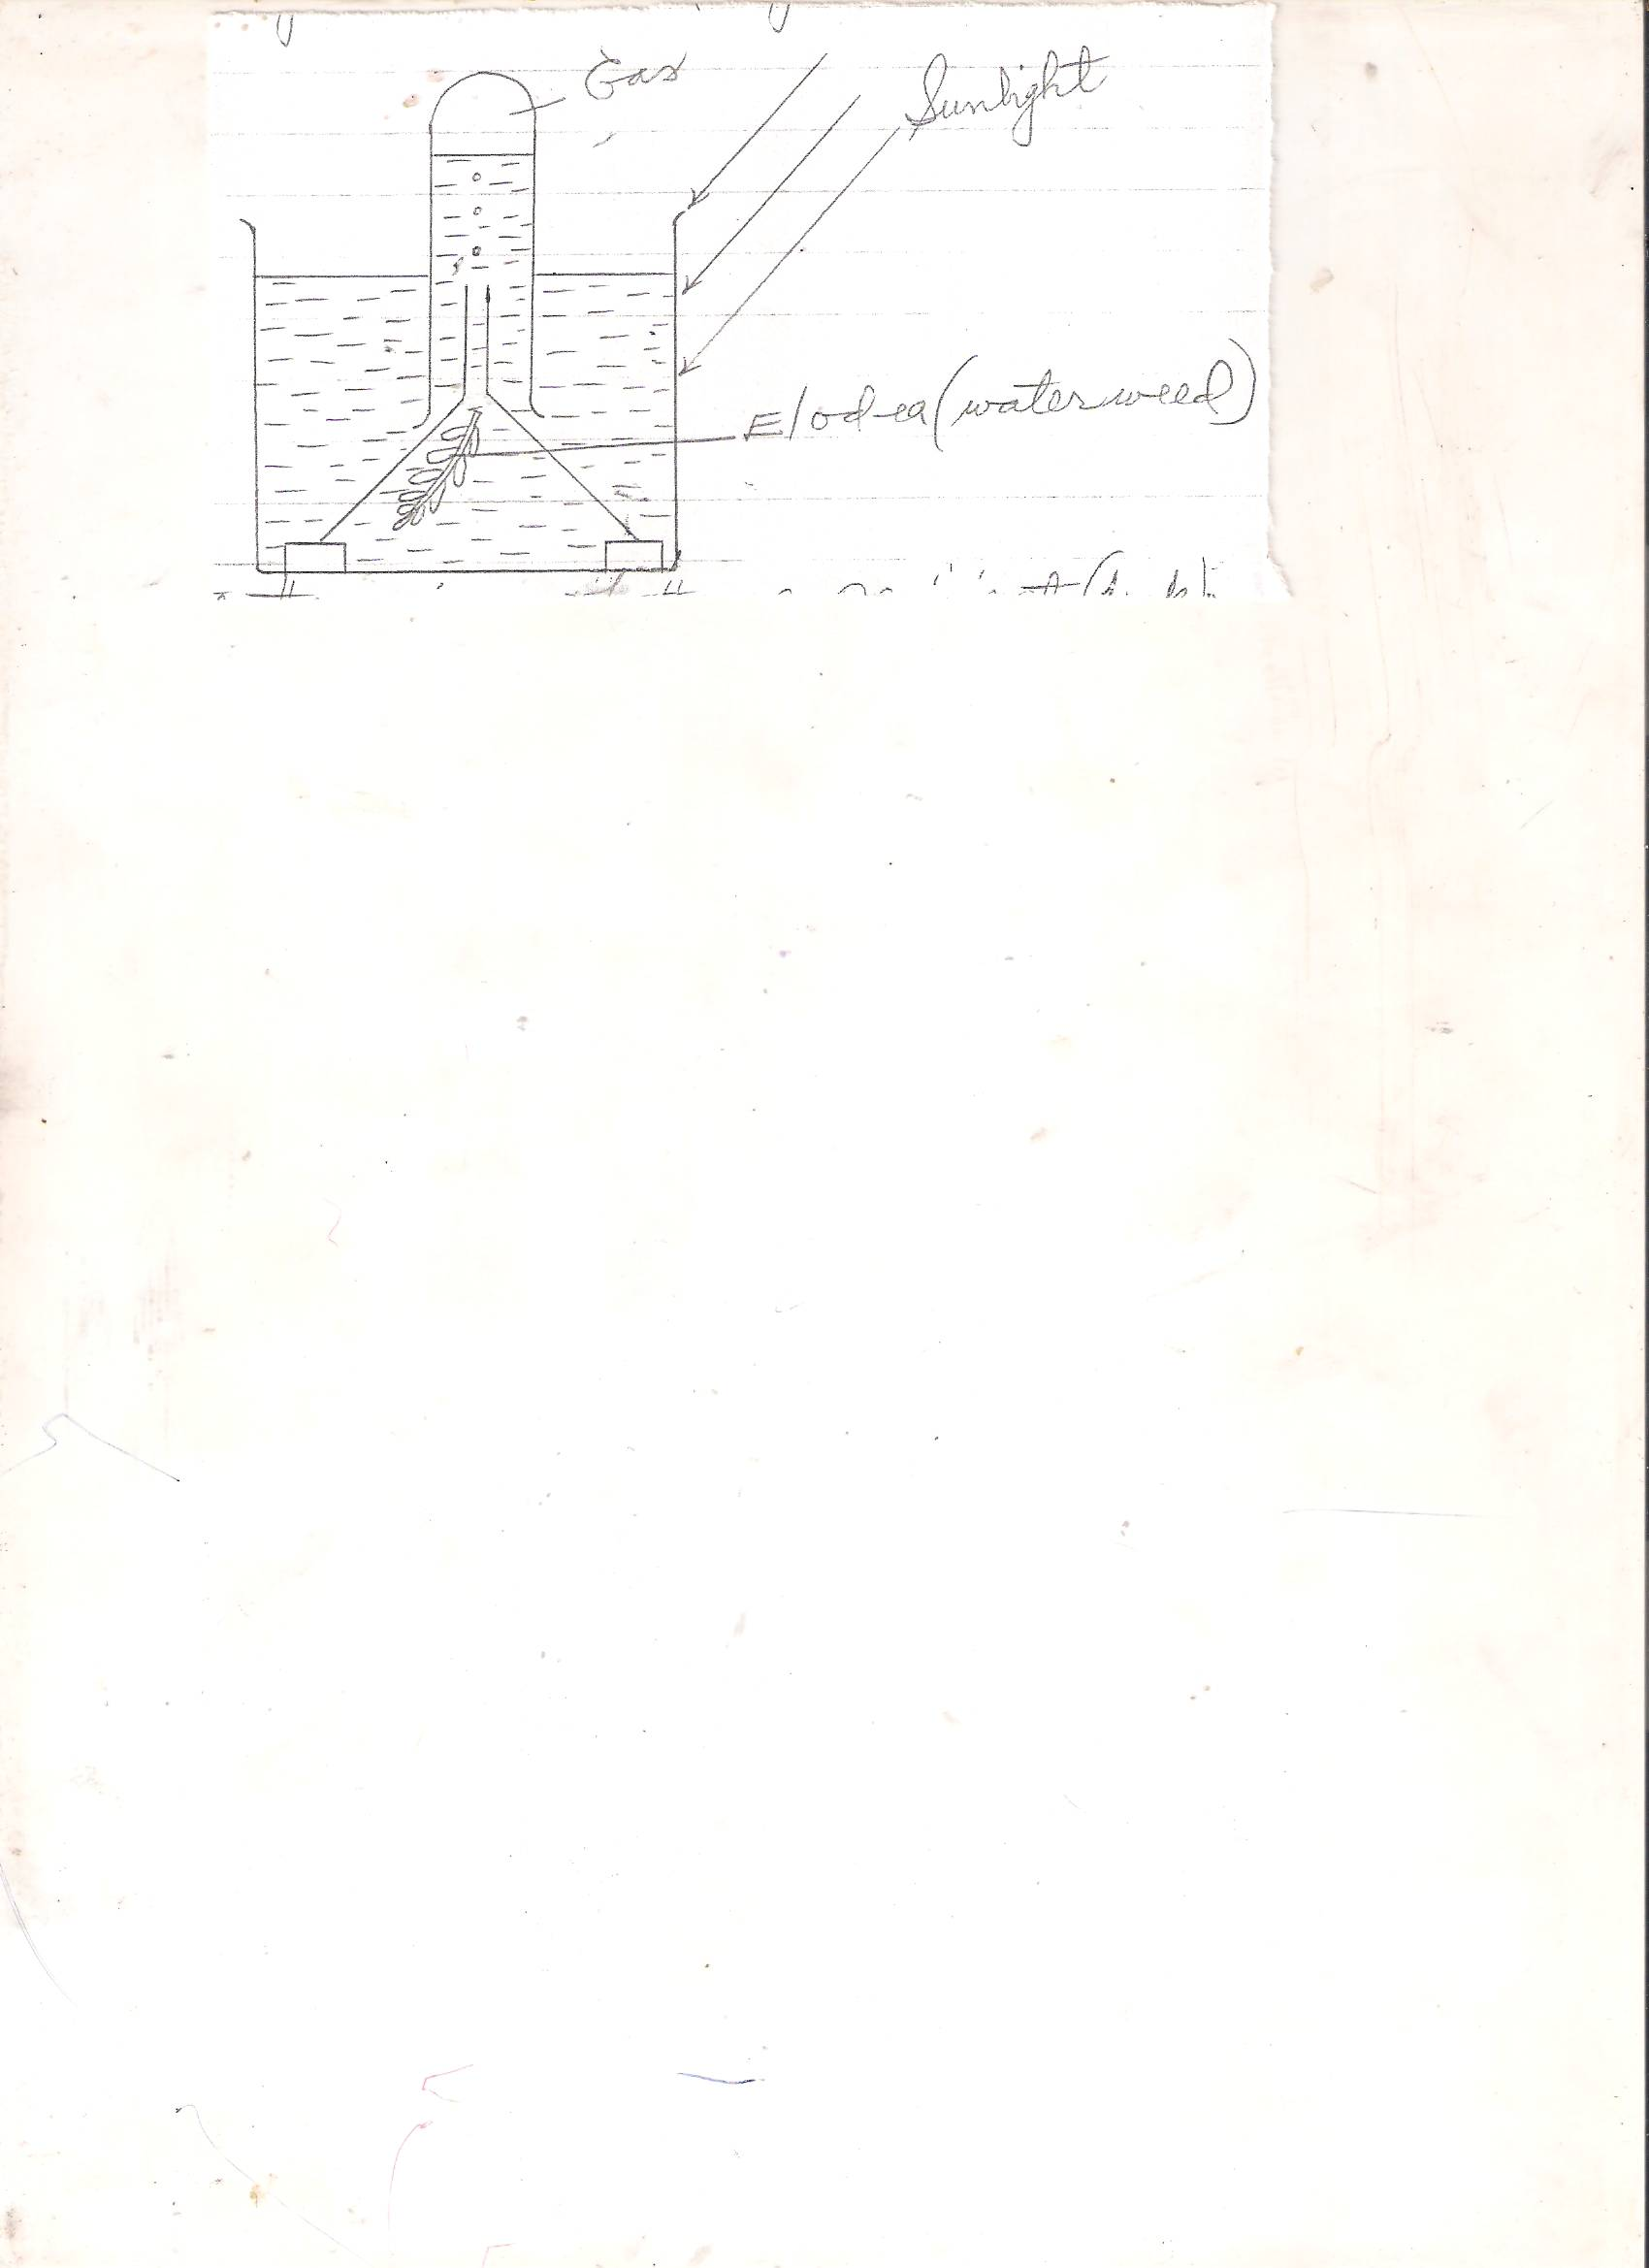 Gas
Sunlight
Elodea (water weed)